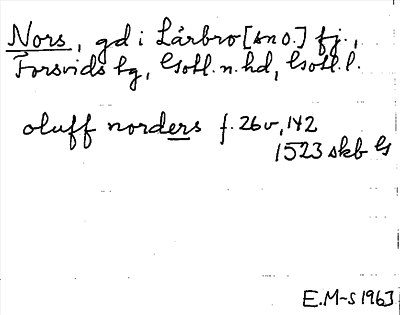 Nors, gd i Lärbro [sn o.] fj.,
Forsvids tg, Gotl. n. hd, Gotl. l.
oluff norders f. 26v, 142
1523 skb G
E.M-S 1963